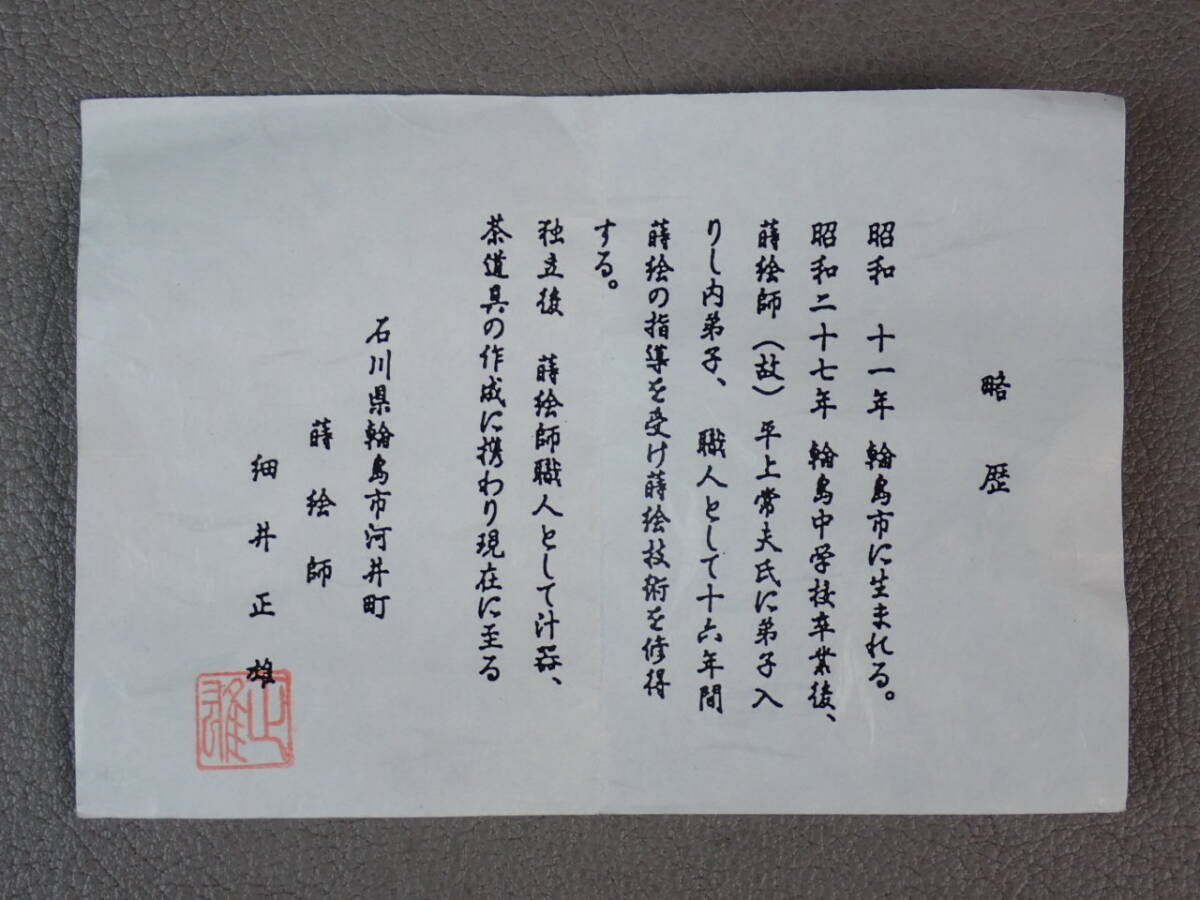 略歴
昭和 十一年 輪島市に生まれる。
昭和二十七年 輪島中学校卒業後、
蒔絵師（故）平上常夫氏に弟子入
りし内弟子、 職人として十六年間
蒔絵の指導を受け蒔絵技術を修得
する。
独立後 蒔絵師職人として汁器、
茶道具の作成に携わり現在に至る
石川県輪島市河井町
蒔絵師
細井正雄
正雄